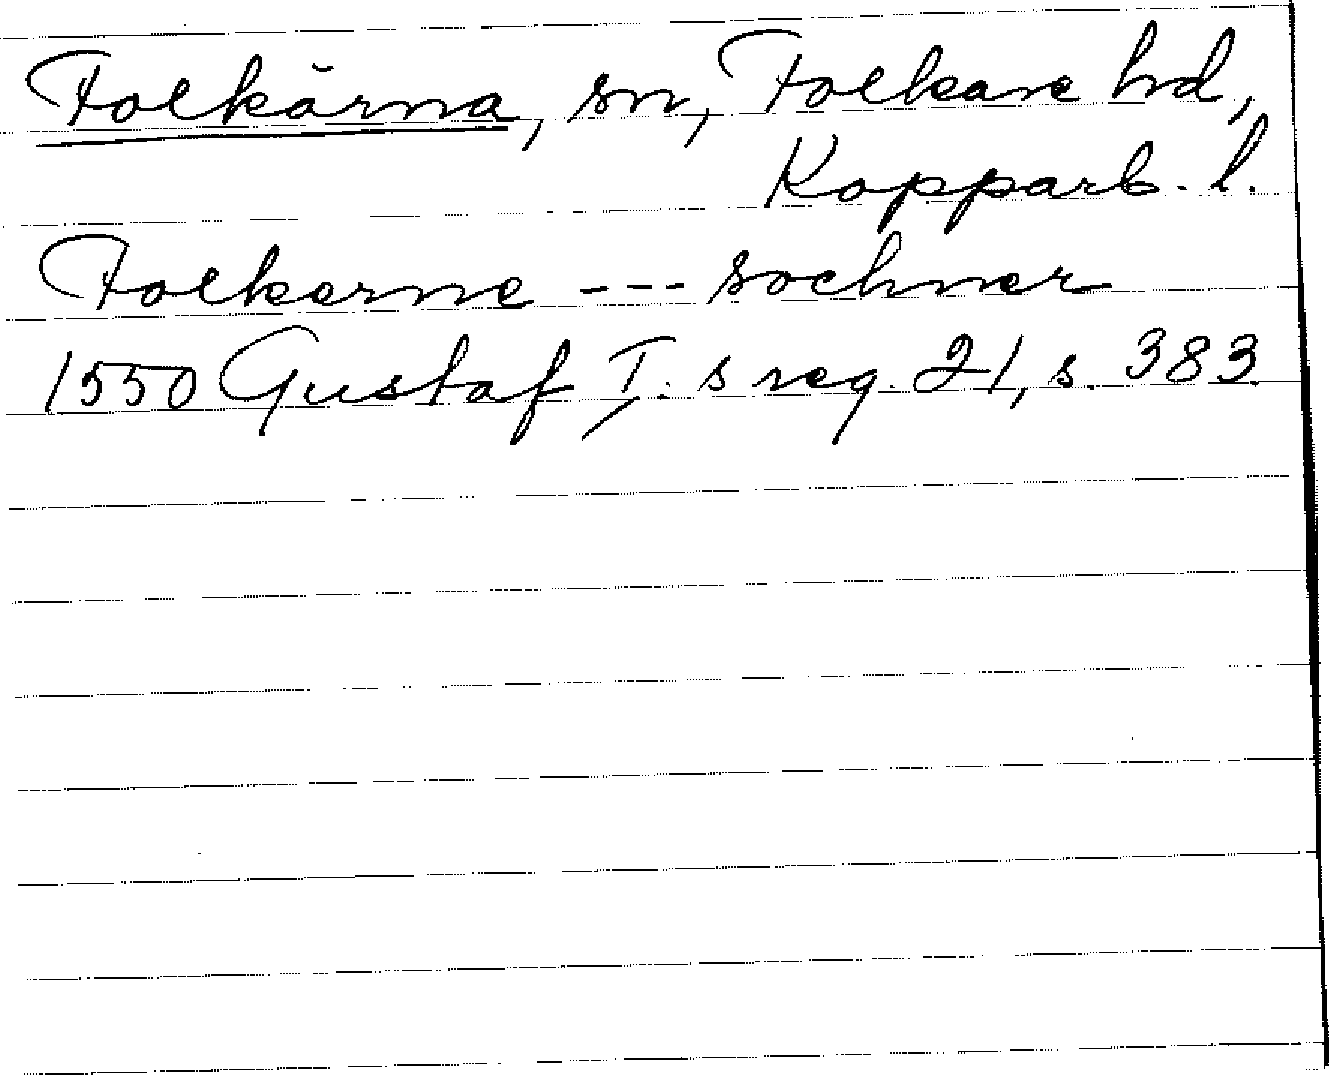 Folkärna, sn, Folkare hd,
Kopparb. l.
Folkerne --- sochner
1550 Gustaf I:s reg. 21, s. 383